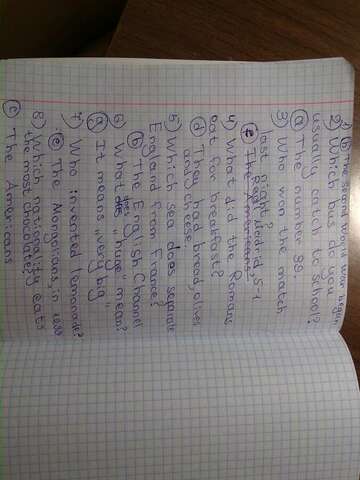 1) (b) The second world war began
2) Which bus do you
usually catch to school?
(a) The number 99.
3) Who won the match
last night?
(f) Real Madrid, 5-1
The Americans
4) What did the Romans
eat for breakfast?
(d) They had bread, olives
and cheese.
5) Which sea does separate
England from France?
(b) The English Channel
6) What does "huge" mean?
(g) It means "very big"
7) Who invented lemonade?
(e) The Mongolians, in 1299
8) Which nationality eats
the most chocolate?
(c) The Americans